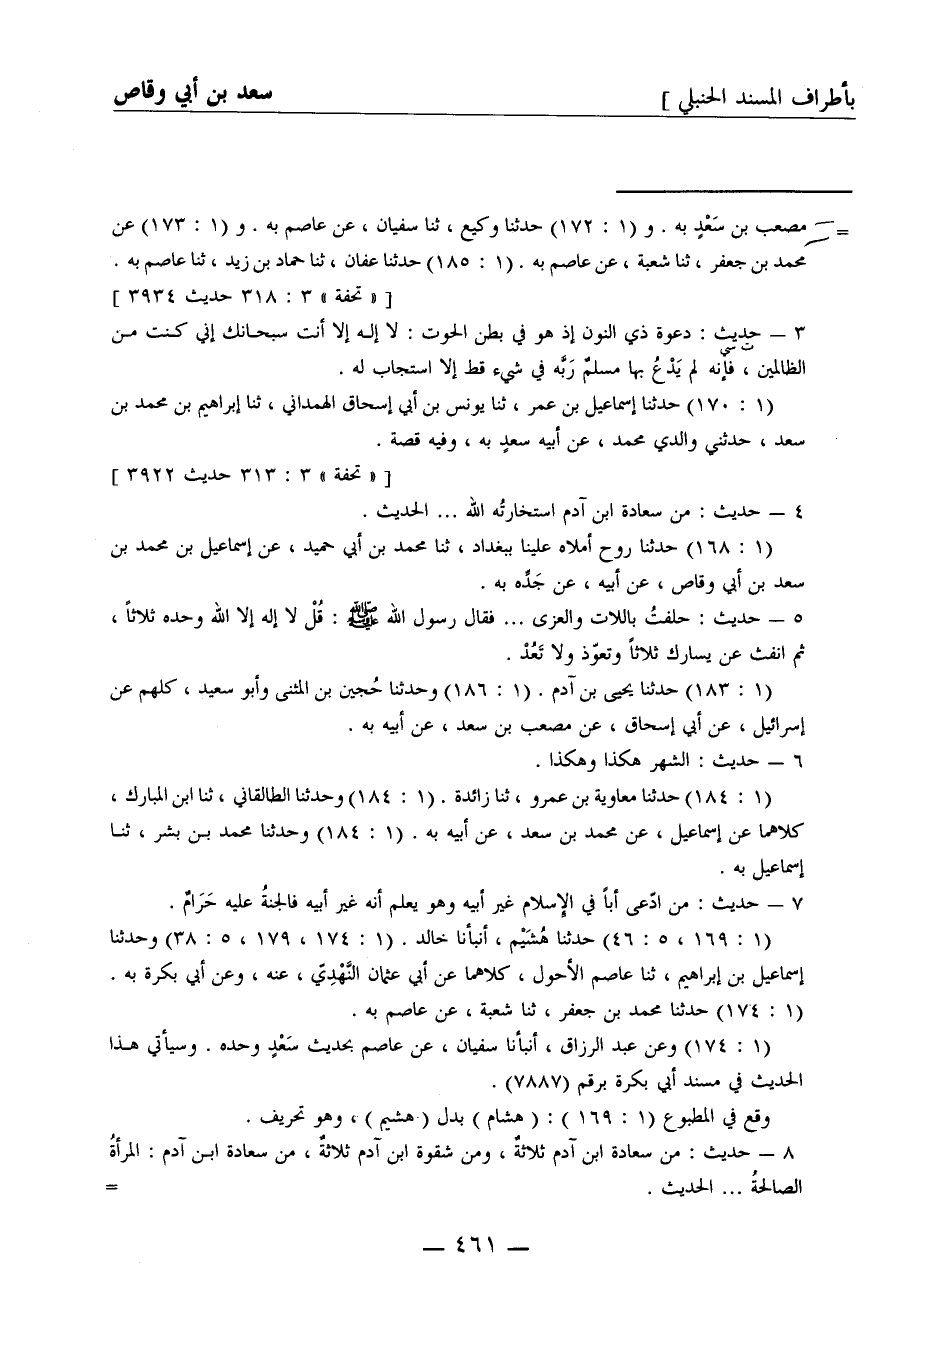 بأطراف المسند الحنبلي ] سعد بن أبي وقاص
= مصعب بن سَعْدٍ به . و (١ : ١٧٢) حدثنا وكيع ، ثنا سفيان ، عن عاصم به . و (١ : ١٧٣) عن
محمد بن جعفر ، ثنا شعبة ، عن عاصم به . (١ : ١٨٥) حدثنا عفان ، ثنا حماد بن زيد ، ثنا عاصم به .
[ « تحفة » ٣ : ٣١٨ حديث ٣٩٣٤ ]
٣ — حديث : دعوة ذي النون إذ هو في بطن الحوت : لا إلـه إلا أنت سبحانك إني كنت من
ت سي
الظالمين ، فإنه لم يَدْعُ بها مسلمٌ رَبَّه في شيء قط إلا استجاب له .
(١ : ١٧٠) حدثنا إسماعيل بن عمر ، ثنا يونس بن أبي إسحاق الهمداني ، ثنا إبراهيم بن محمد بن
سعد ، حدثني والدي محمد ، عن أبيه سعدٍ به ، وفيه قصة .
[ « تحفة » ٣ : ٣١٣ حديث ٣٩٢٢ ]
٤ — حديث : من سعادة ابن آدم استخارتُه الله ... الحديث .
(١ : ١٦٨) حدثنا روح أملاه علينا ببغداد ، ثنا محمد بن أبي حميد ، عن إسماعيل بن محمد بن
سعد بن أبي وقاص ، عن أبيه ، عن جَدِّه به .
٥ — حديث : حلفتُ باللات والعزى ... فقال رسول الله ﷺ : قُلْ لا إله إلا الله وحده ثلاثاً ،
ثم انفث عن يسارك ثلاثاً وتعوّذ ولا تَعُدْ .
(١ : ١٨٣) حدثنا يحيى بن آدم . (١ : ١٨٦) وحدثنا حُجين بن المثنى وأبو سعيد ، كلهم عن
إسرائيل ، عن أبي إسحاق ، عن مصعب بن سعد ، عن أبيه به .
٦ — حديث : الشهر هكذا وهكذا .
(١ : ١٨٤) حدثنا معاوية بن عمرو ، ثنا زائدة . (١ : ١٨٤) وحدثنا الطالقاني ، ثنا ابن المبارك ،
كلاهما عن إسماعيل ، عن محمد بن سعد ، عن أبيه به . (١ : ١٨٤) وحدثنا محمد بـن بشر ، ثنـا
إسماعيل به .
٧ — حديث : من ادّعى أباً في الإسلام غير أبيه وهو يعلم أنه غير أبيه فالجنةُ عليه حَرَامٌ .
(١ : ١٦٩ ، ٥ : ٤٦) حدثنا هُشَيْم ، أنبأنا خالد . (١ : ١٧٤ ، ١٧٩ ، ٥ : ٣٨) وحدثنا
إسماعيل بن إبراهيم ، ثنا عاصم الأحول ، كلاهما عن أبي عثمان النَّهْدِيّ ، عنه ، وعن أبي بكرة به .
(١ : ١٧٤) حدثنا محمد بن جعفر ، ثنا شعبة ، عن عاصم به .
(١ : ١٧٤) وعن عبد الرزاق ، أنبأنا سفيان ، عن عاصم بحديث سَعْدٍ وحده . وسيأتي هـذا
الحديث في مسند أبي بكرة برقم (٧٨٨٧) .
وقع في المطبوع (١ : ١٦٩ ) : ( هشام ) بدل ( هشيم ) ، وهو تحريف .
٨ — حديث : من سعادة ابن آدم ثلاثةٌ ، ومن شقوة ابن آدم ثلاثةٌ ، من سعادة ابـن آدم : المرأةُ
الصالحةُ ... الحديث . =
— ٤٦١ —